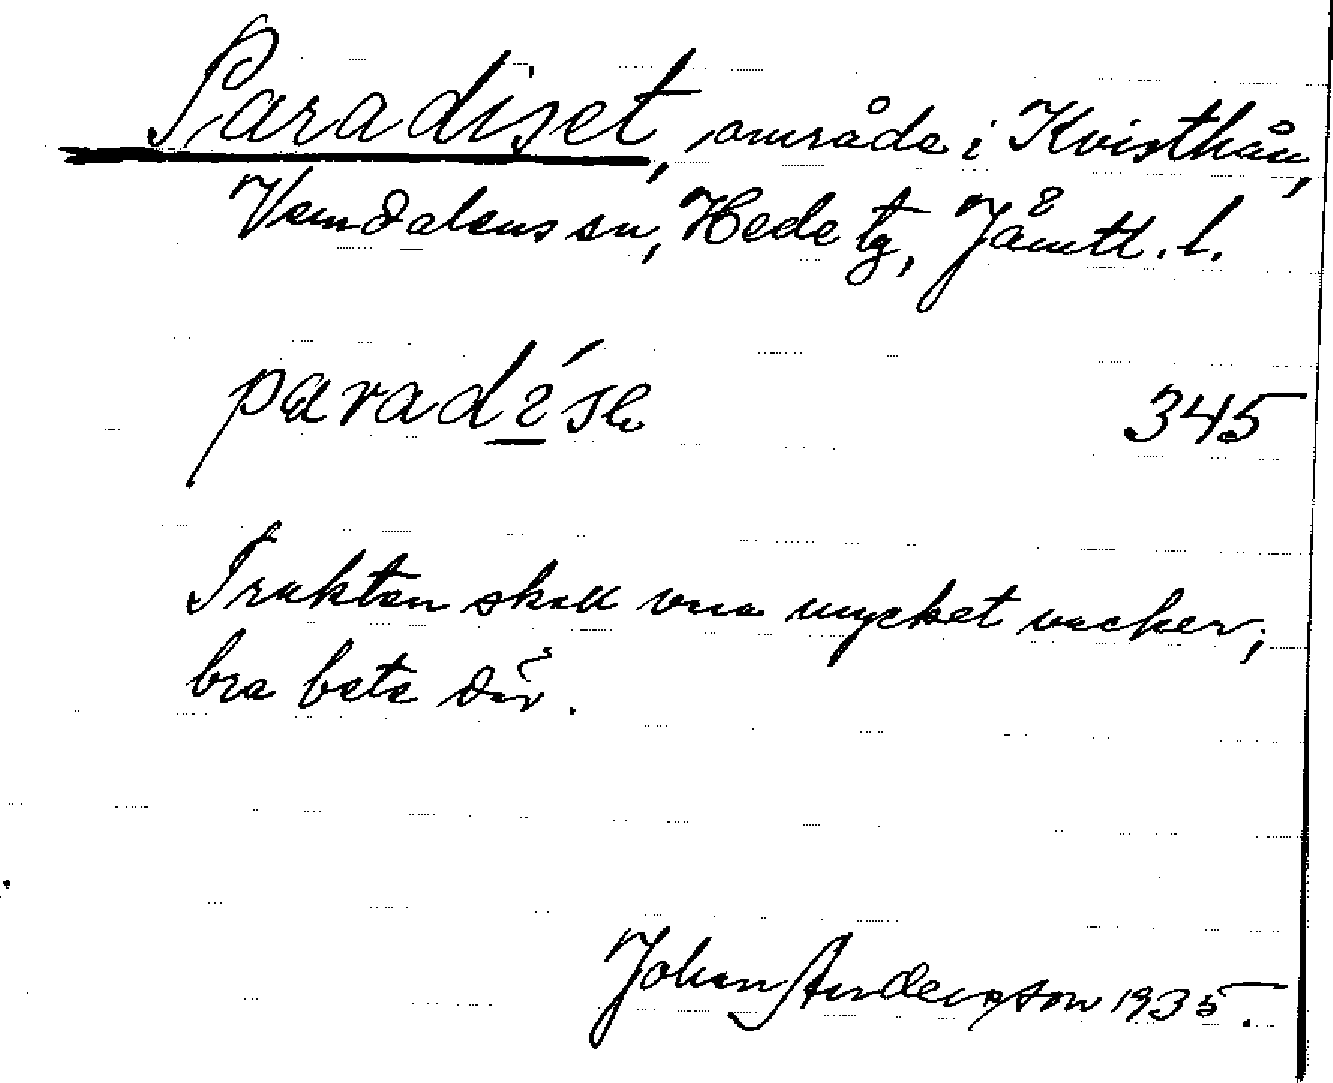 Paradiset, område i Kvisthån,
Vemdalens sn, Hede tg, Jämtl. l.
paradísə 345
Trakten skall vara mycket vacker,
bra bete där.
Johan Anderson 1935.